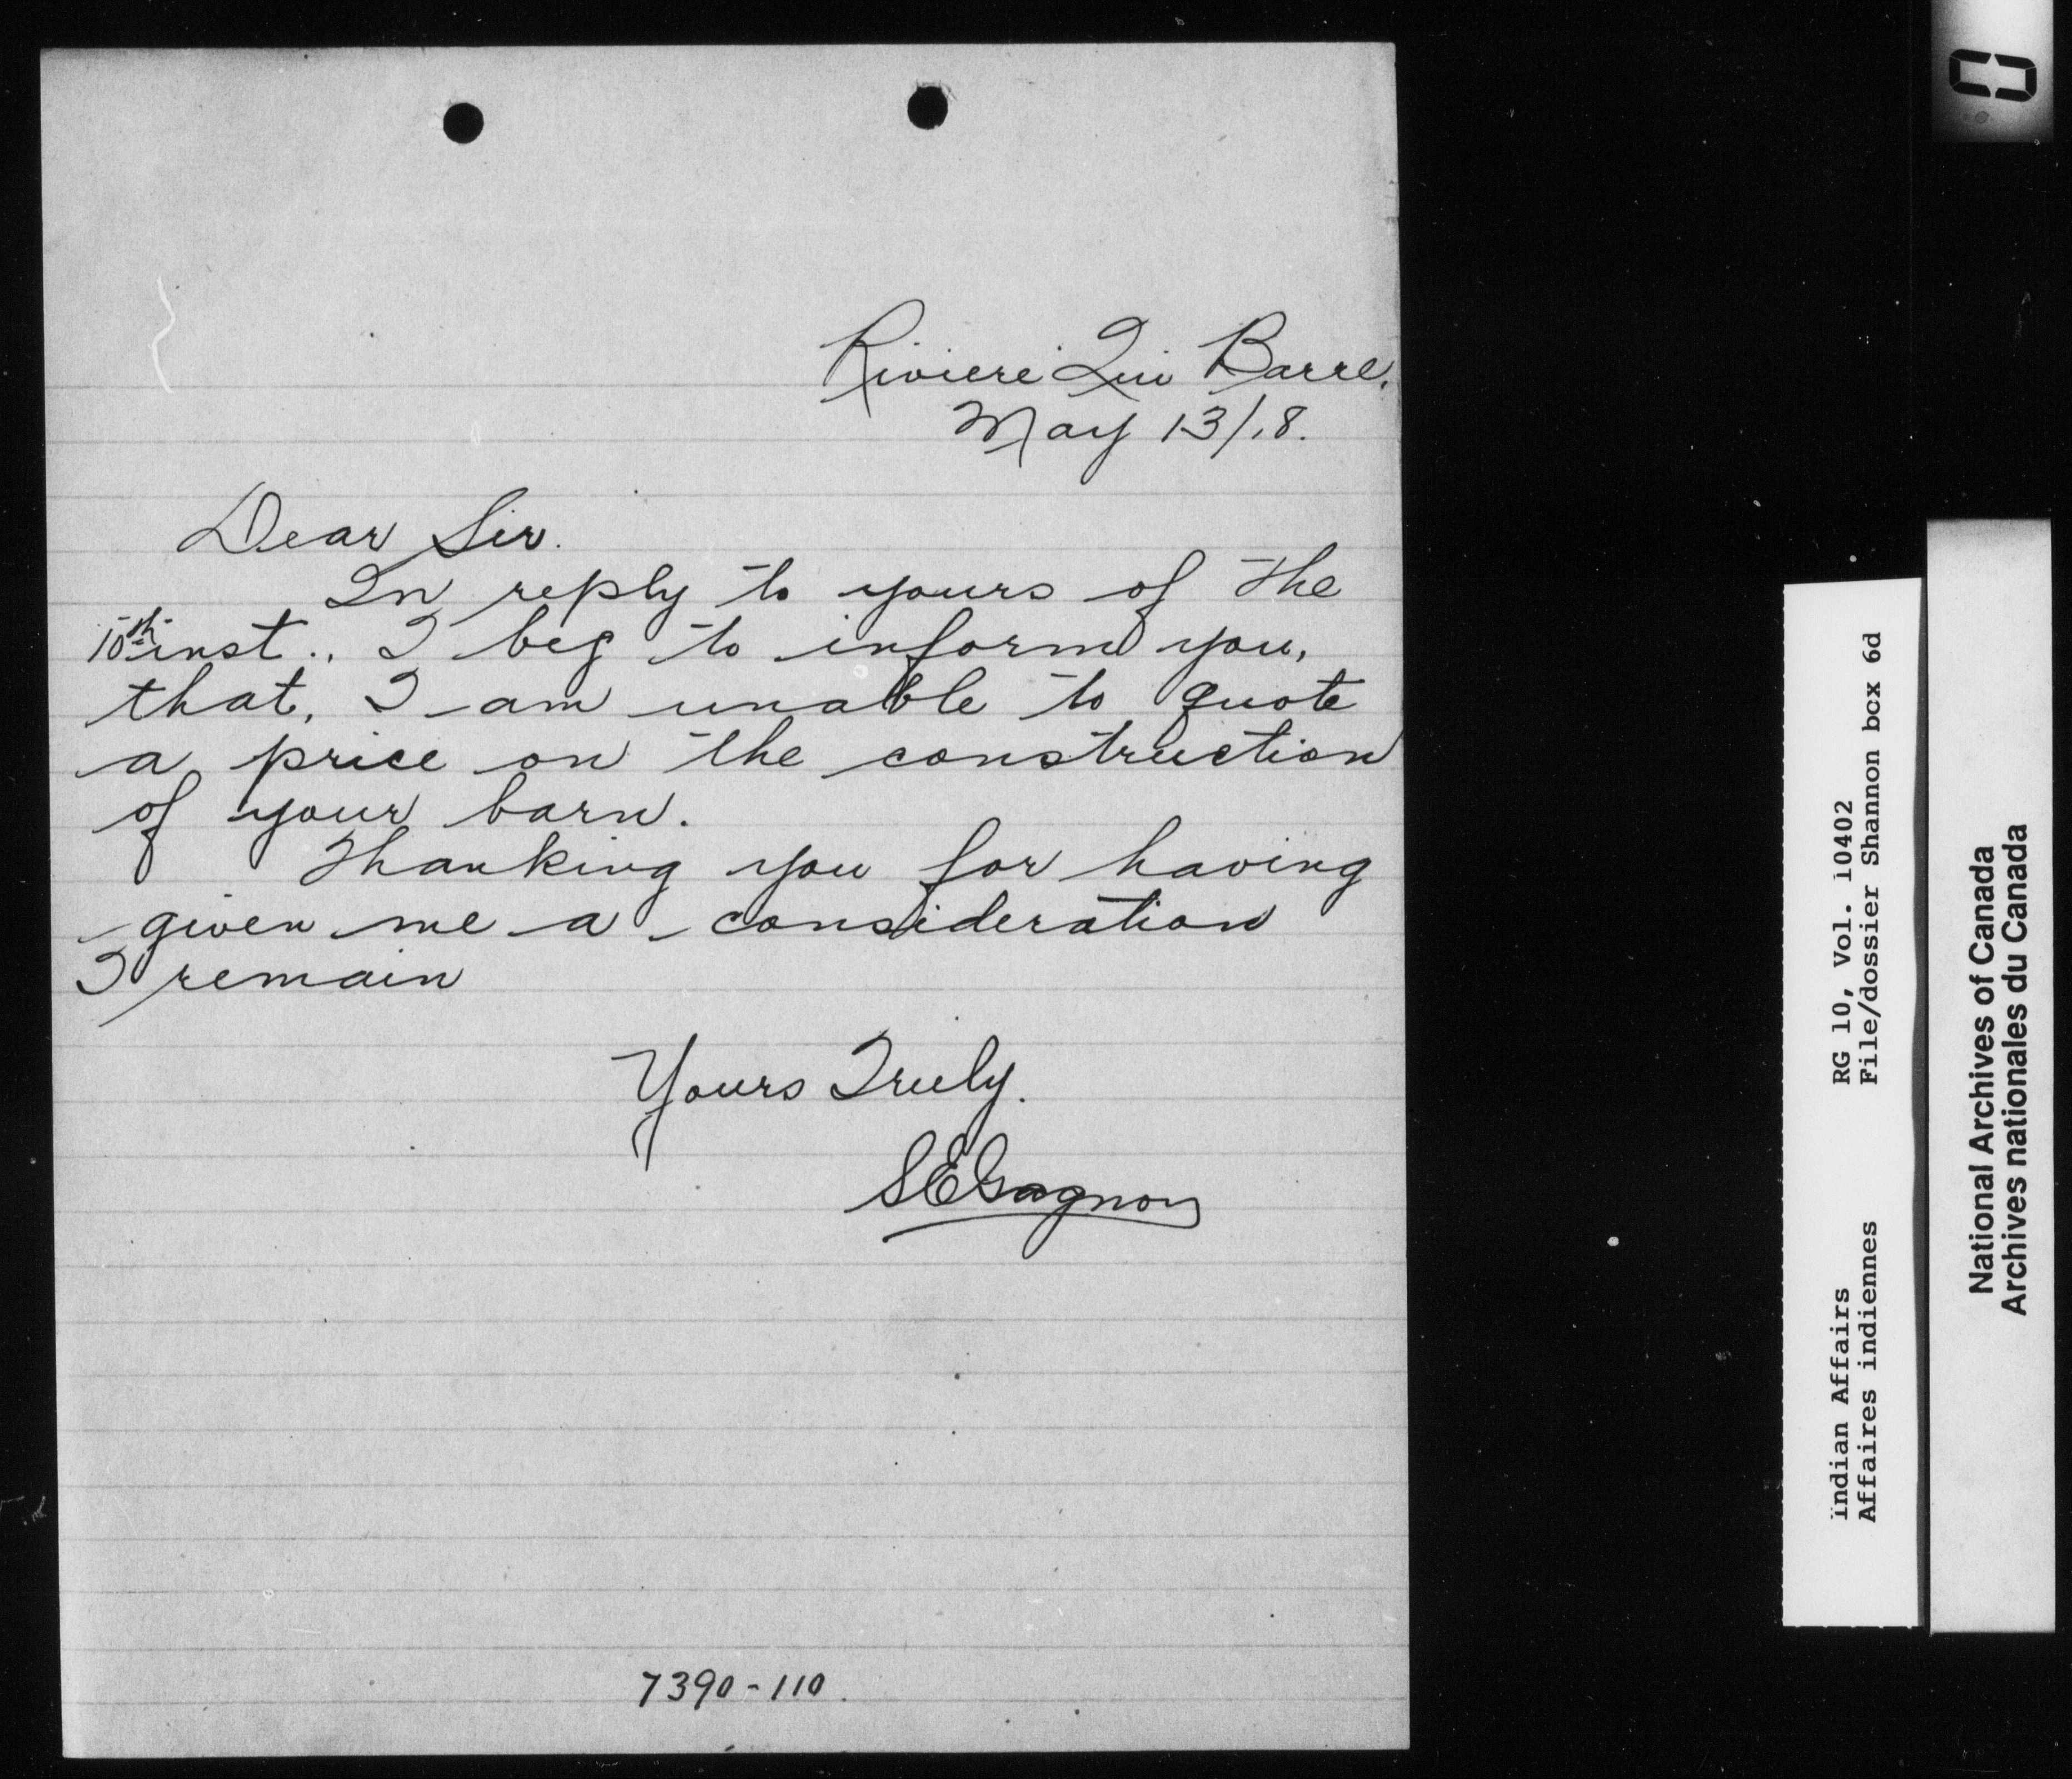 Riviere Qui Barre,
May 13/18.
Dear Sir.
In reply to yours of the
10th inst., I beg to inform you,
that, I am unable to quote
a price on the construction
of your barn.
Thanking you for having
given me a consideration
I remain
Yours Truly.
S E Gagnon
7390-110.
Indian Affairs
Affaires indiennes
RG 10, Vol. 10402
File/dossier Shannon box 6d
National Archives of Canada
Archives nationales du Canada